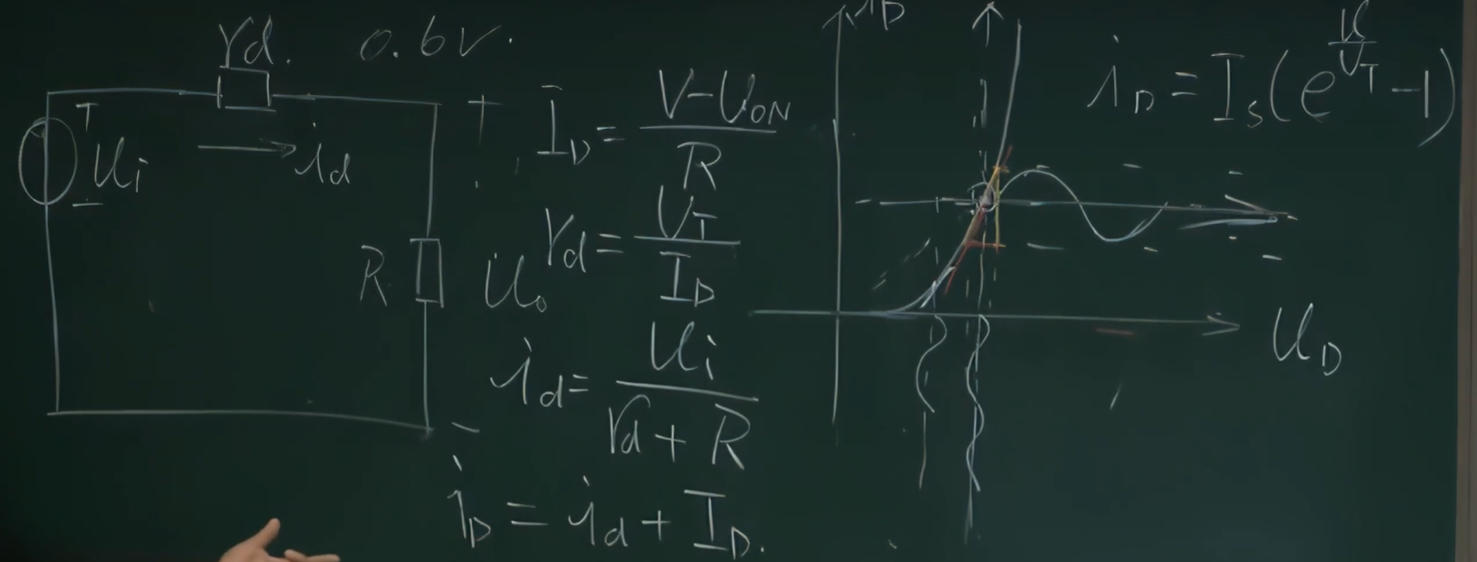 rd. 0.6V.
+
ui
-
id
R
+
uo
-
ID = (V-UON)/R
rd = UT/ID
id = ui/(rd+R)
iD = id + ID.
iD
uD
iD = IS(e^(u/UT) -1)